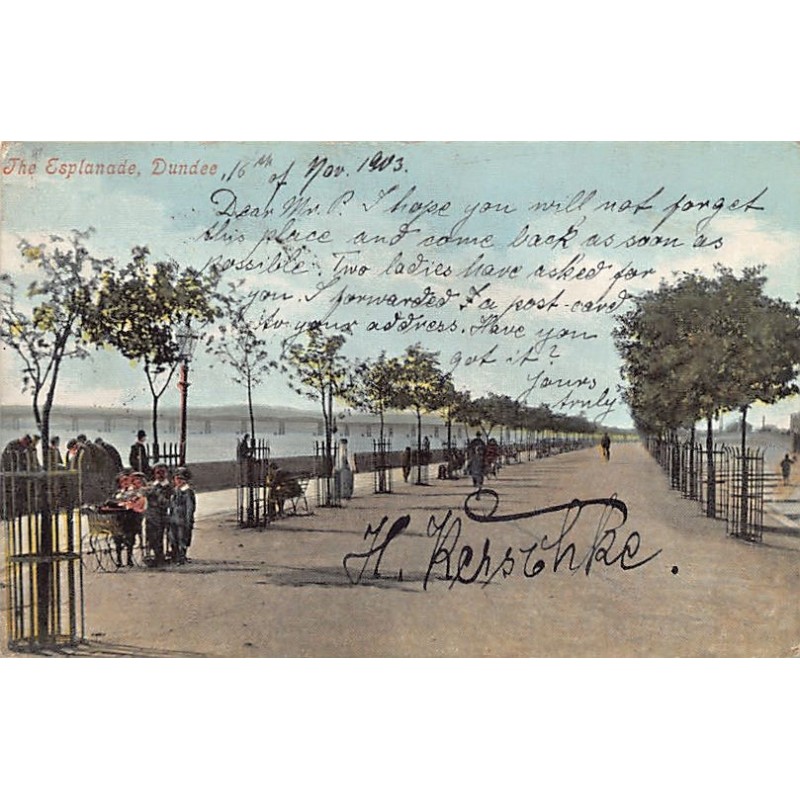 The Esplanade, Dundee, 16th of Nov. 1903.
Dear Mr. P. I hope you will not forget
this place and come back as soon as
possible. Two ladies have asked for
you. I forwarded a post-card
to your address. Have you
got it?
Yours
truly
H. Kerschke.